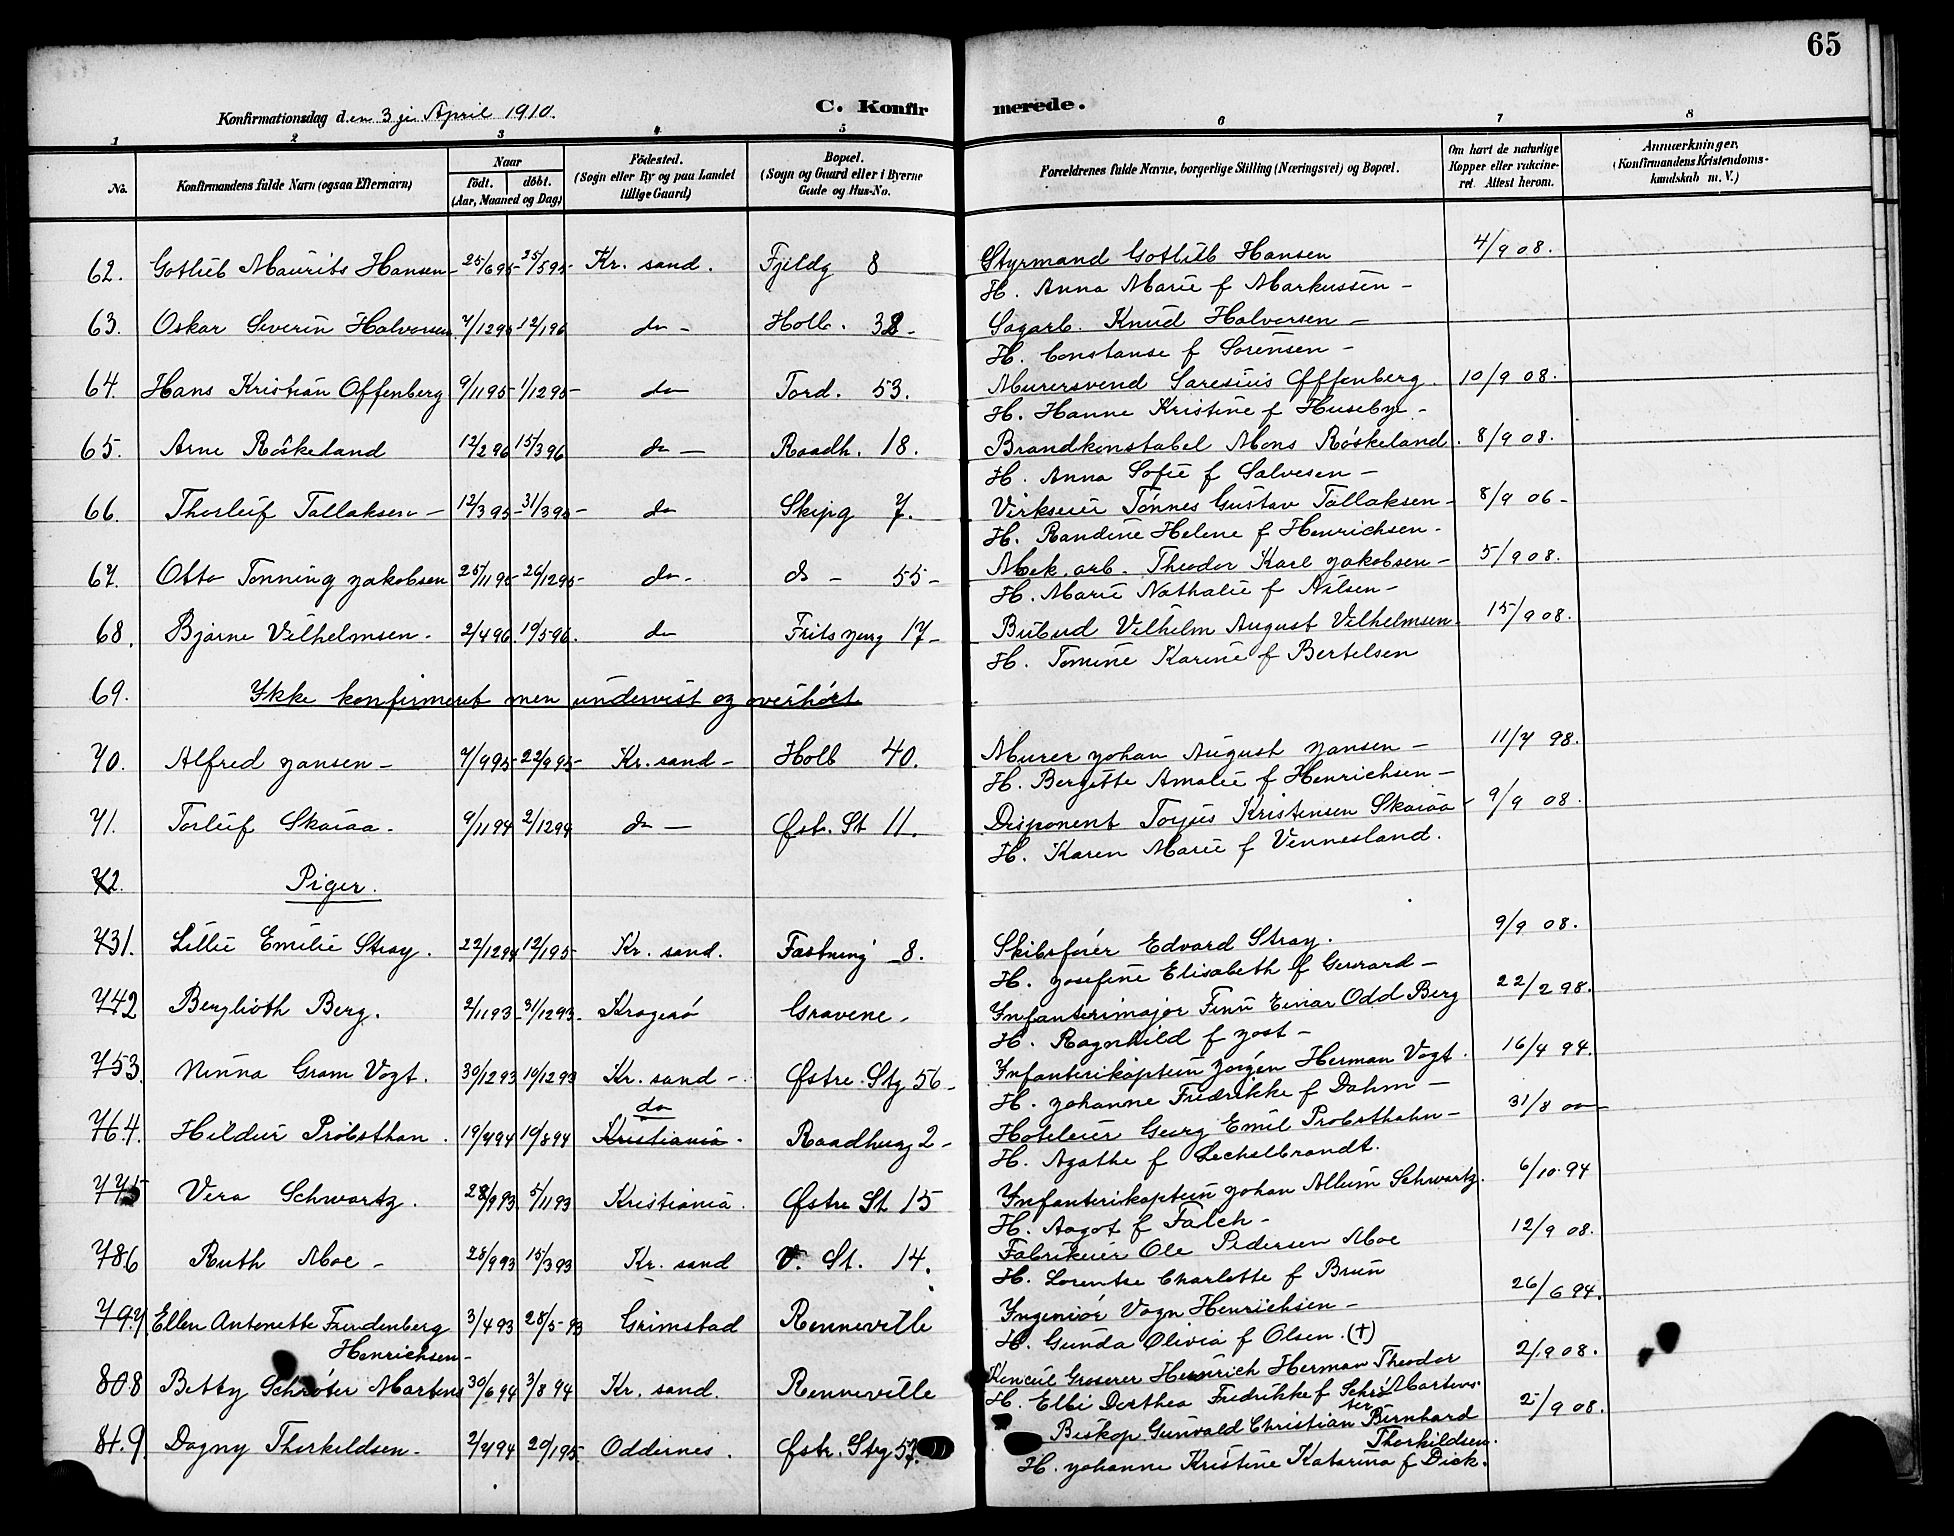 65
Konfirmationsdag den 3je April 1910.
C. Konfirmerede.
1 2 3 4 5 6 7 8
No.
Konfirmandens fulde Navn (ogsaa Efternavn)
Naar
født. døbt.
(Aar, Maaned og Dag)
Fødested.
(Sogn eller By og paa Landet tillige Gaard)
Bopæl.
(Sogn og Gaard eller i Byerne Gade og Hus-No.
Forældrenes fulde Navne, borgerlige Stilling (Næringsvei) og Bopæl.
Om havt de naturlige Kopper eller vakcineret. Attest herom.
Anmærkninger.
(Konfirmandens Kristendomskundskab m. V.)
62. Gotlieb Maurits Hansen 25/6 95 25/5 95 Kr. sand. Fjeldg 8 Styrmand Gotlieb Hansen 4/9 08.
H. Anna Marie f Markussen
63. Oskar Severin Halvorsen 7/12 95 12/1 96 do Holb. 38 Sagarb. Knud Halvorsen
H. Constanse f Sorensen
64. Hans Kristian Offenberg 9/11 95 1/12 95 do Tord. 53. Murersvend Saresius Offenberg. 10/9 08.
H. Hanne Kristine f Huseby
65. Arne Røskeland 12/2 96 15/3 96 do Raadh. 18. Brandkonstabel Mons Røskeland. 8/9 08.
H. Anna Sofie f Salvesen
66. Thorleif Tallaksen 12/3 95 31/3 95 do Skipg 7. Virkseier Tønnes Gustav Tallaksen 8/9 06
H. Randine Helene f Henrichsen
67. Otto Tenning Jakobsen 25/11 95 26/12 95 do do 55 Mek. arb. Theodor Karl Jakobsen 5/9 08.
H. Marie Nathalie f Nilsen
68. Bjarne Vilhelmsen 2/4 96. 19/5 96. do Fritsjung 17 Bübud Vilhelm August Vilhelmsen 15/9 08.
H. Tomine Karine f Bertelsen
69. Ikke konfirmeret men undervist og overhørt
70. Alfred Jansen 7/9 95 22/9 95 Kr. sand Holb 40. Murer Johan August Jansen 11/7 98.
H. Bergitte Amalie f Henrichsen
71. Torleif Skaiaa 9/11 94 2/12 94 do Østr. St 11. Disponent Torjus Kristensen Skaiaa 9/9 08.
H. Karen Marie f Vennesland.
72. Piger.
731. Lillie Emilie Stray. 22/12 94 12/1 95 Kr. sand. Fastning 8. Skibsfører Edvard Stray. 9/9 08.
H. Josefine Elisabeth f Gerrard
742 Berglioth Berg. 2/11 93 31/12 93 Kragerø Gravene Infanterimajor Finn Einar Odd Berg 22/2 98.
H. Ragnhild f Jost
753. Ninna Gram Vogt. 30/12 93 10/12 93 Kr. sand Østre. Stg 56 Infanterikaptein Jørgen Herman Vogt. 16/4 94.
H. Johanne Fredrikke f Dahm
764. Hildur Probsthan. 19/4 94 19/8 94 Kristiania do Raadhusg 2 Hoteleier Georg Emil Probsthahn 31/8 00
H. Agathe f Lechelbrandt.
775 Vera Schwartz. 28/9 93 5/11 93 Kristiania. Østre St 15 Infanterikaptein Johan Allum Schwartz. 6/10 94
H. Aagot f Falch
786 Ruth Moe 28/9 93 15/3 93 Kr. sand V. St. 14. Fabrikeier Ole Pedersen Moe 12/9 08.
H. Lorentse Charlotte f Brun
797. Ellen Antonette Freudenberg Henrichsen 3/4 93 28/5 93 Grimstad Renneville Ingeniør Vagn Henrichsen 26/6 94.
H. Gunda Olivia f Olsen. (†)
808 Betty Schrøter Martens 30/6 94 3/8 94 Kr. sand. Renneville Koncul Groserer Heinrich Herman Theodor Martens. 2/9 08.
H. Elbi Dorthea Fredrikke f Schrøter
819. Dagny Thorkildsen 2/7 94 20/1 95 Oddernes. Østr. Stg 57. Biskop Gunvald Christian Bernhard Thorkildsen. 2/9 08.
H. Johanne Kristine Katarina f Dick.